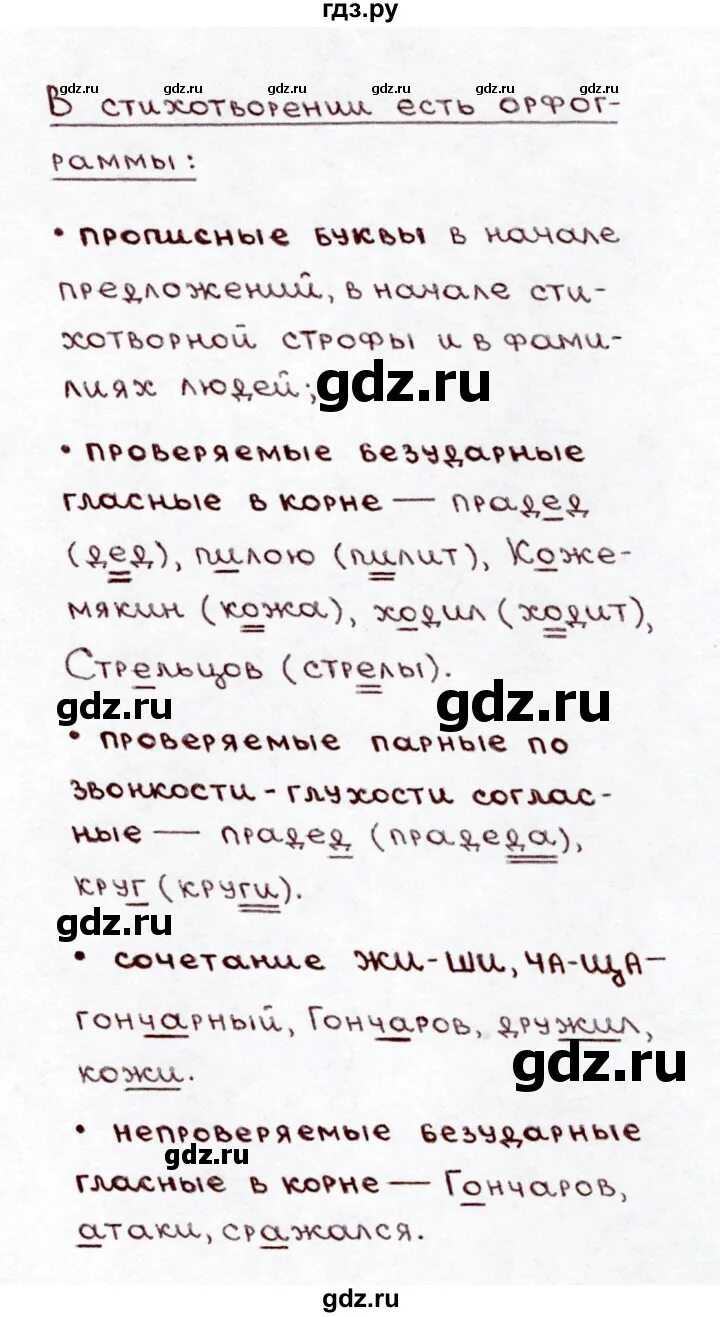 гдз.ру
gdz.ru gdz.ru gdz.ru gdz.ru gdz.ru
В стихотворении есть орфог-
раммы:
• прописные буквы в начале
предложений, в начале сти-
хотворной строфы и в фами-
лиях людей;
gdz.ru
• проверяемые безударные
гласные в корне — прадед
(дед), пилою (пилит), Коже-
мякин (кожа), ходил (ходит),
Стрельцов (стрелы).
gdz.ru gdz.ru
• проверяемые парные по
звонкости-глухости соглас-
ные — прадед (прадеда),
круг (круги).
gdz.ru
• сочетание жи-ши, ча-ща —
гончарный, Гончаров, дружил,
кожи.
gdz.ru
• непроверяемые безударные
gdz.ru
гласные в корне — Гончаров,
атаки, сражался.
gdz.ru